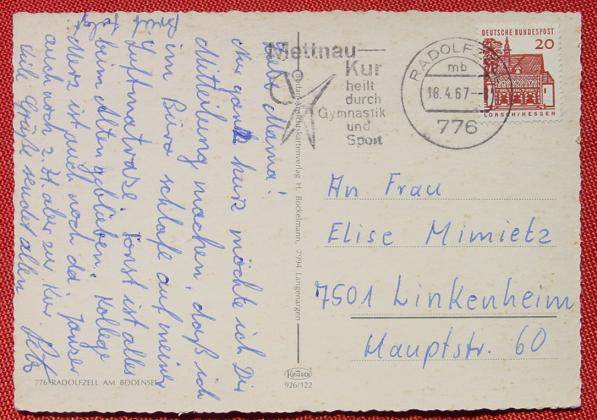 Liebe Mama!
Nur ganz kurz möchte ich Dir
Mitteilung machen, daß ich
im Büro schlafe auf meiner
Luftmatraße. Sonst ist alles
beim Alten geblieben. Kollege
Merz ist auch noch da
auch noch z. H. aber zu Kur.
viele Grüße sendet allen
Brief folgt
776 RADOLFZELL AM BODENSEE
H. Bockelmann, 7994 Langenargen
KRÜGER
926/122
Mettnau-
Kur
heilt
durch
Gymnastik
und
Sport
RADOLFZELL
mb
18.4.67
776
DEUTSCHE BUNDESPOST
20
LORSCH/HESSEN
An Frau
Elise Mimietz
7501 Linkenheim
Hauptstr. 60